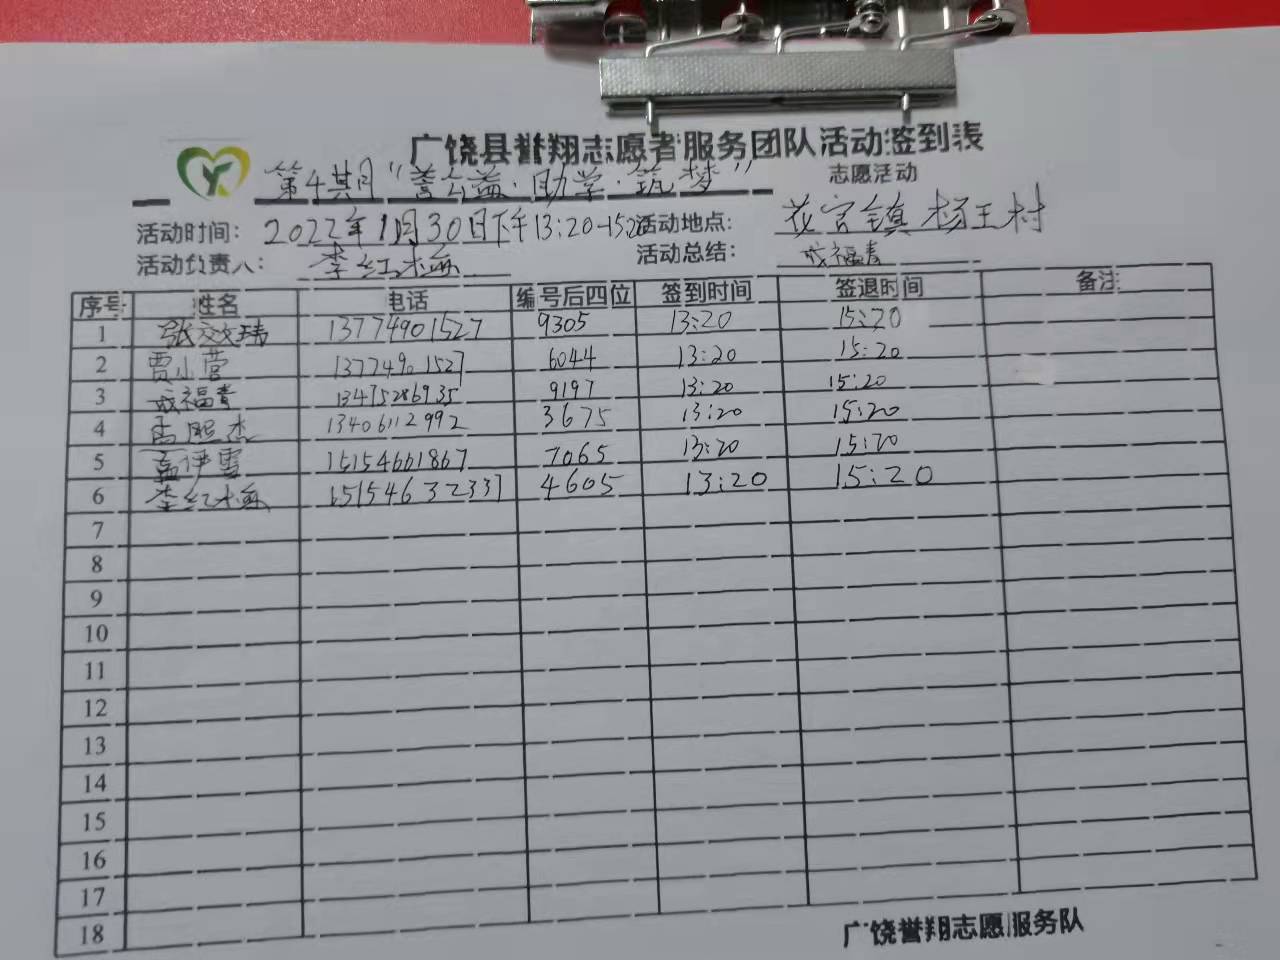 广饶县誉翔志愿者服务团队活动签到表
第4期"善益·助学·筑梦" 志愿活动
活动时间: 2022年1月30日下午13:20-15:20 活动地点: 花官镇杨王村
活动负责人: 李红梅 活动总结: 成福青
序号 姓名 电话 编号后四位 签到时间 签退时间 备注
1 张效玮 13774901527 9305 13:20 15:20
2 贾小营 13774901527 6044 13:20 15:20
3 成福青 13475286935 9197 13:20 15:20
4 高照杰 13406112992 3675 13:20 15:20
5 孟伊雪 15154661867 7065 13:20 15:20
6 李红梅 15154632337 4605 13:20 15:20
7
8
9
10
11
12
13
14
15
16
17
18
广饶誉翔志愿服务队